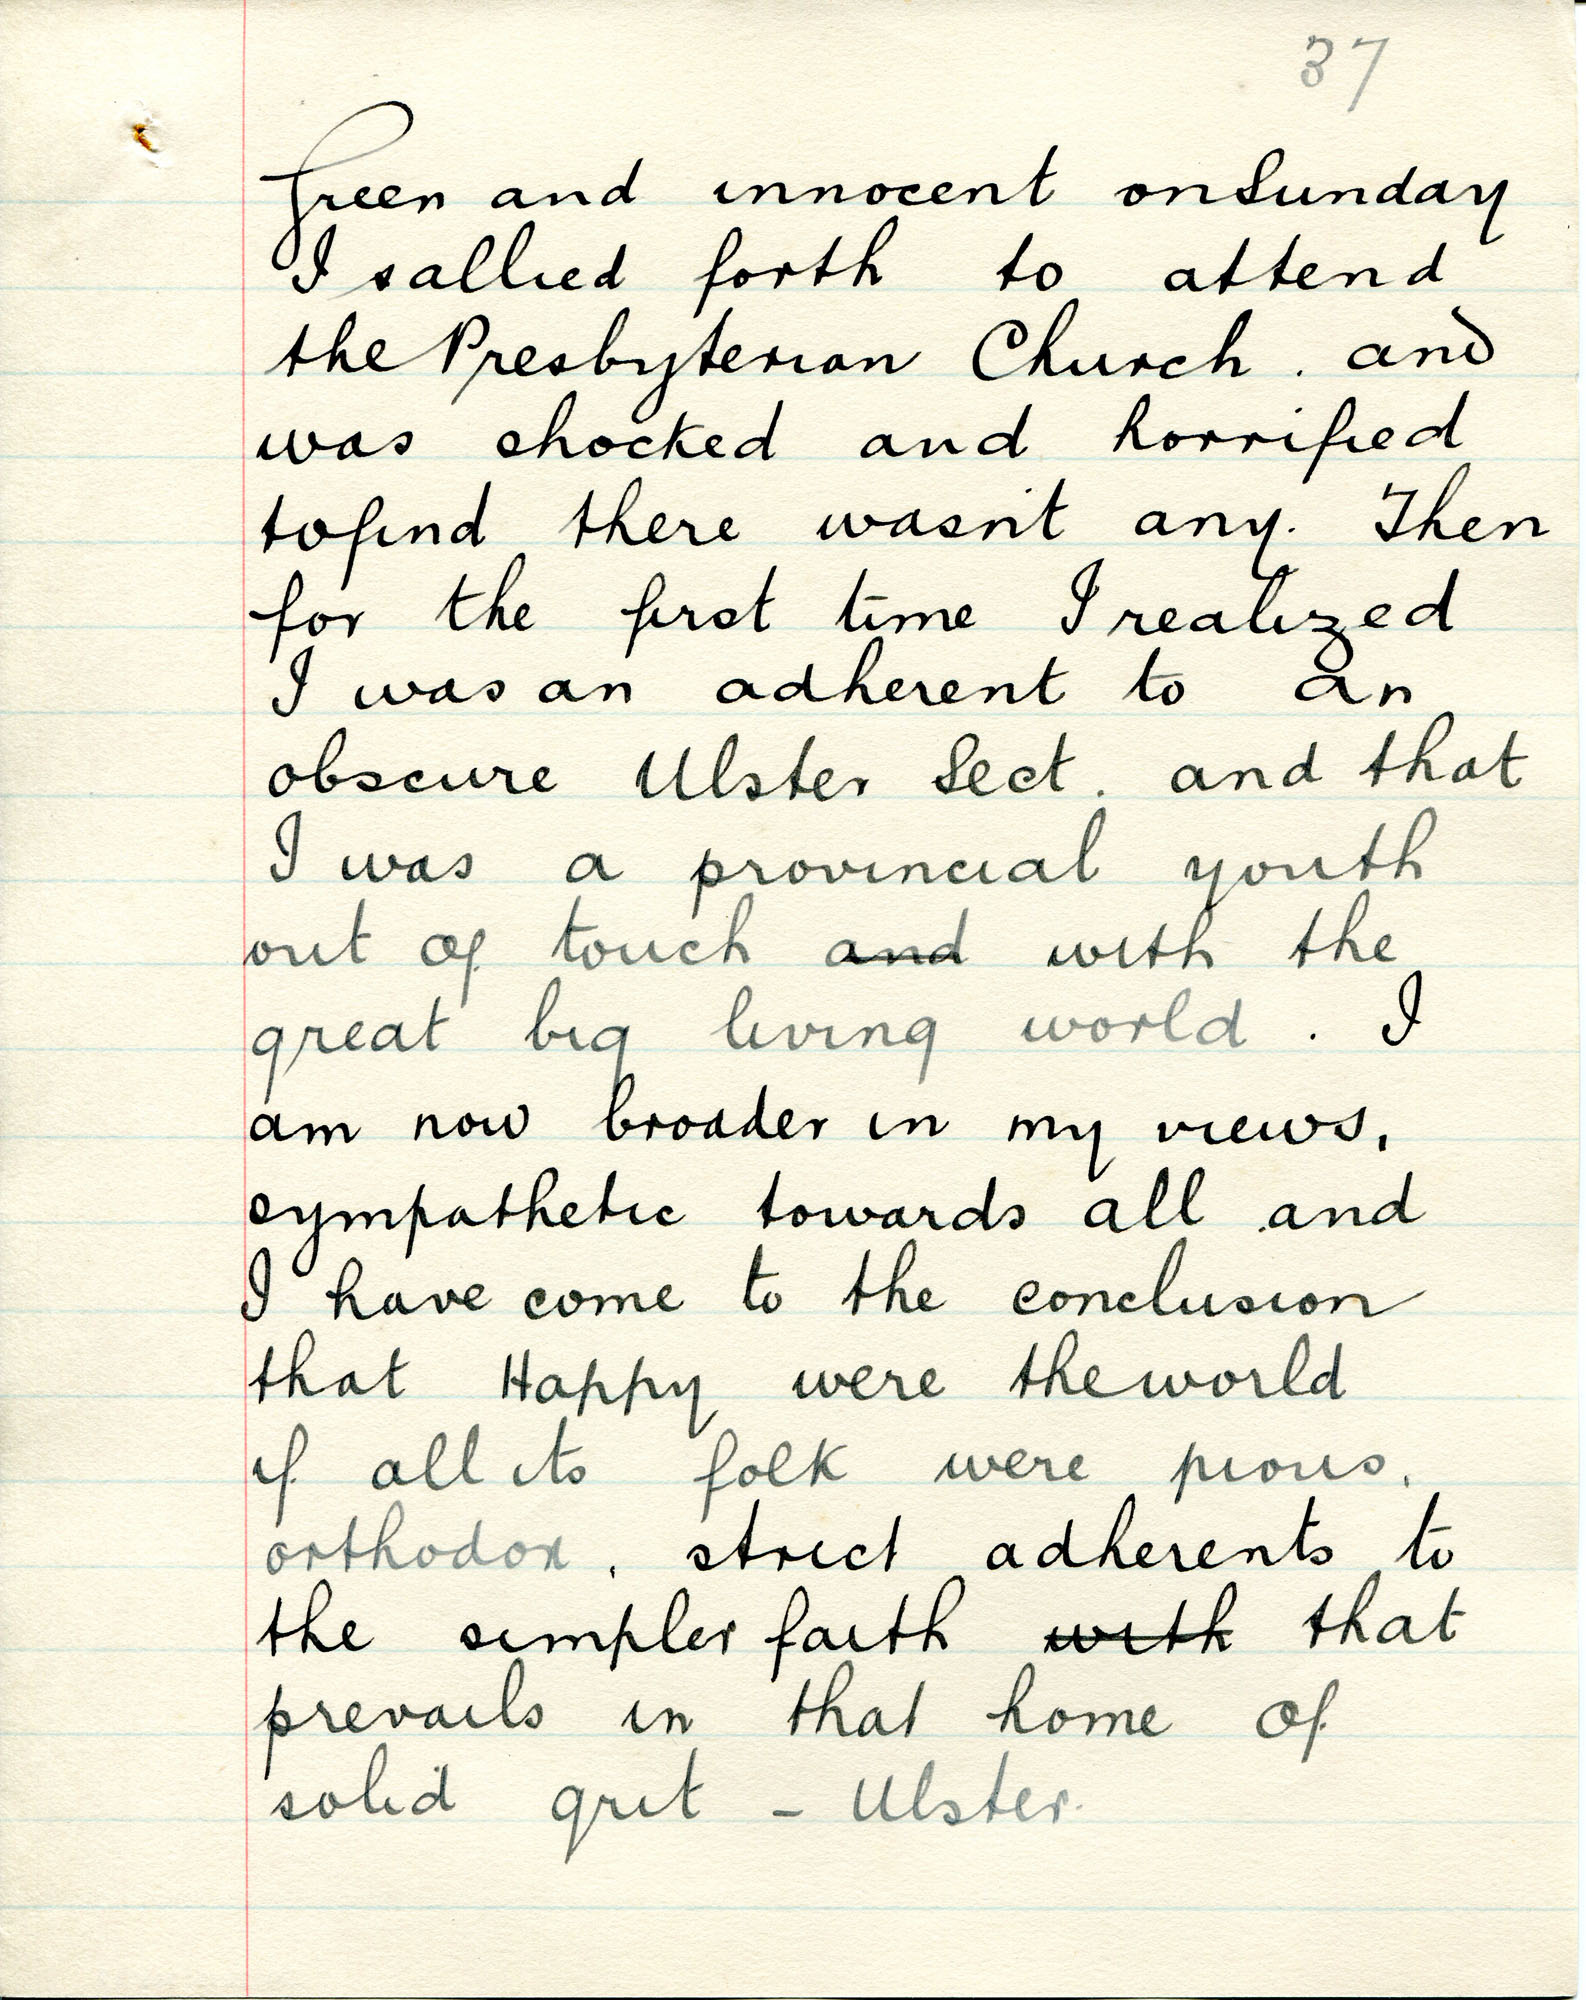 37
Green and innocent on Sunday
I sallied forth to attend
the Presbyterian Church. and
was shocked and horrified
to find there wasn't any. Then
for the first time I realized
I was an adherent to an
obscure Ulster Sect. and that
I was a provincial youth
out of touch and with the
great big living world. I
am now broader in my views,
sympathetic towards all and
I have come to the conclusion
that Happy were the world
if all its folk were pious,
orthodox, strict adherents to
the simpler faith with that
prevails in that home of
solid grit - Ulster.